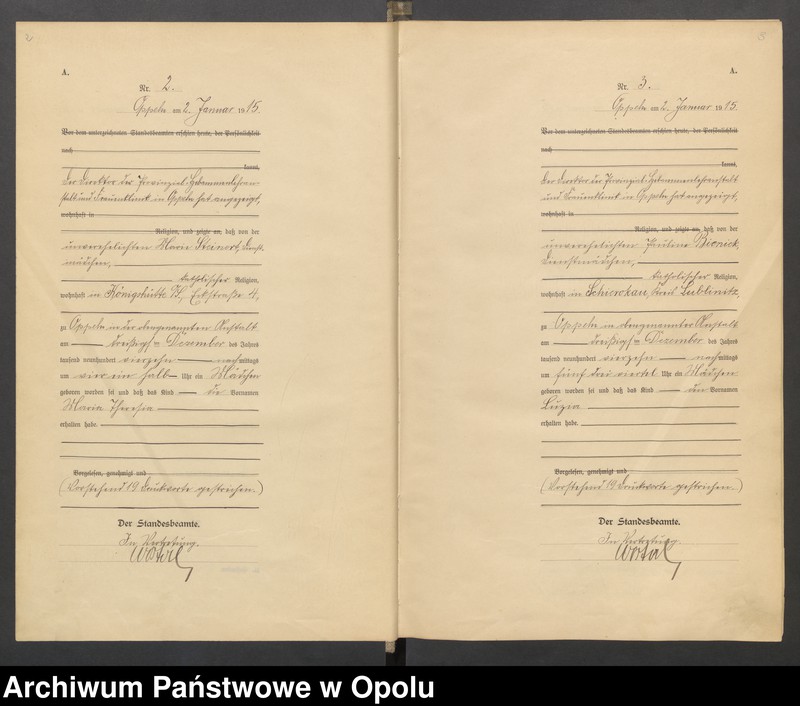 2
A.
Nr. 2.
Oppeln am 2. Januar 1915.
Vor dem unterzeichneten Standesbeamten erschien heute, der Persönlichkeit
nach
kannt,
Der Direktor der Provinzial-Hebammenlehran-
stalt und Frauenklinik in Oppeln hat angezeigt,
wohnhaft in
Religion, und zeigte an, daß von der
unverehelichten Maria Steinert, Dienst-
mädchen,
katholischer Religion,
wohnhaft in Königshütte O/S., Eckstraße 4,
zu Oppeln in der obengenannten Anstalt
am dreißigsten Dezember des Jahres
tausend neunhundert vierzehn nachmittags
um vier ein halb Uhr ein Mädchen
geboren worden sei und daß das Kind die Vornamen
Maria Theresia
erhalten habe.
Vorgelesen, genehmigt und
(Vorstehend 19 Druckworte gestrichen.)
Der Standesbeamte.
In Vertretung.
3
A.
Nr. 3.
Oppeln am 2. Januar 1915.
Vor dem unterzeichneten Standesbeamten erschien heute, der Persönlichkeit
nach
kannt,
Der Direktor der Provinzial-Hebammenlehranstalt
und Frauenklinik in Oppeln hat angezeigt,
wohnhaft in
Religion, und zeigte an, daß von der
unverehelichten Pauline Bienick,
Dienstmädchen,
katholischer Religion,
wohnhaft in Schierokau, Kreis Lublinitz,
zu Oppeln in obengenannter Anstalt
am dreißigsten Dezember des Jahres
tausend neunhundert vierzehn nachmittags
um fünf drei viertel Uhr ein Mädchen
geboren worden sei und daß das Kind den Vornamen
Luzia
erhalten habe.
Vorgelesen, genehmigt und
(Vorstehend 19 Druckworte gestrichen.)
Der Standesbeamte.
In Vertretung.
Archiwum Państwowe w Opolu